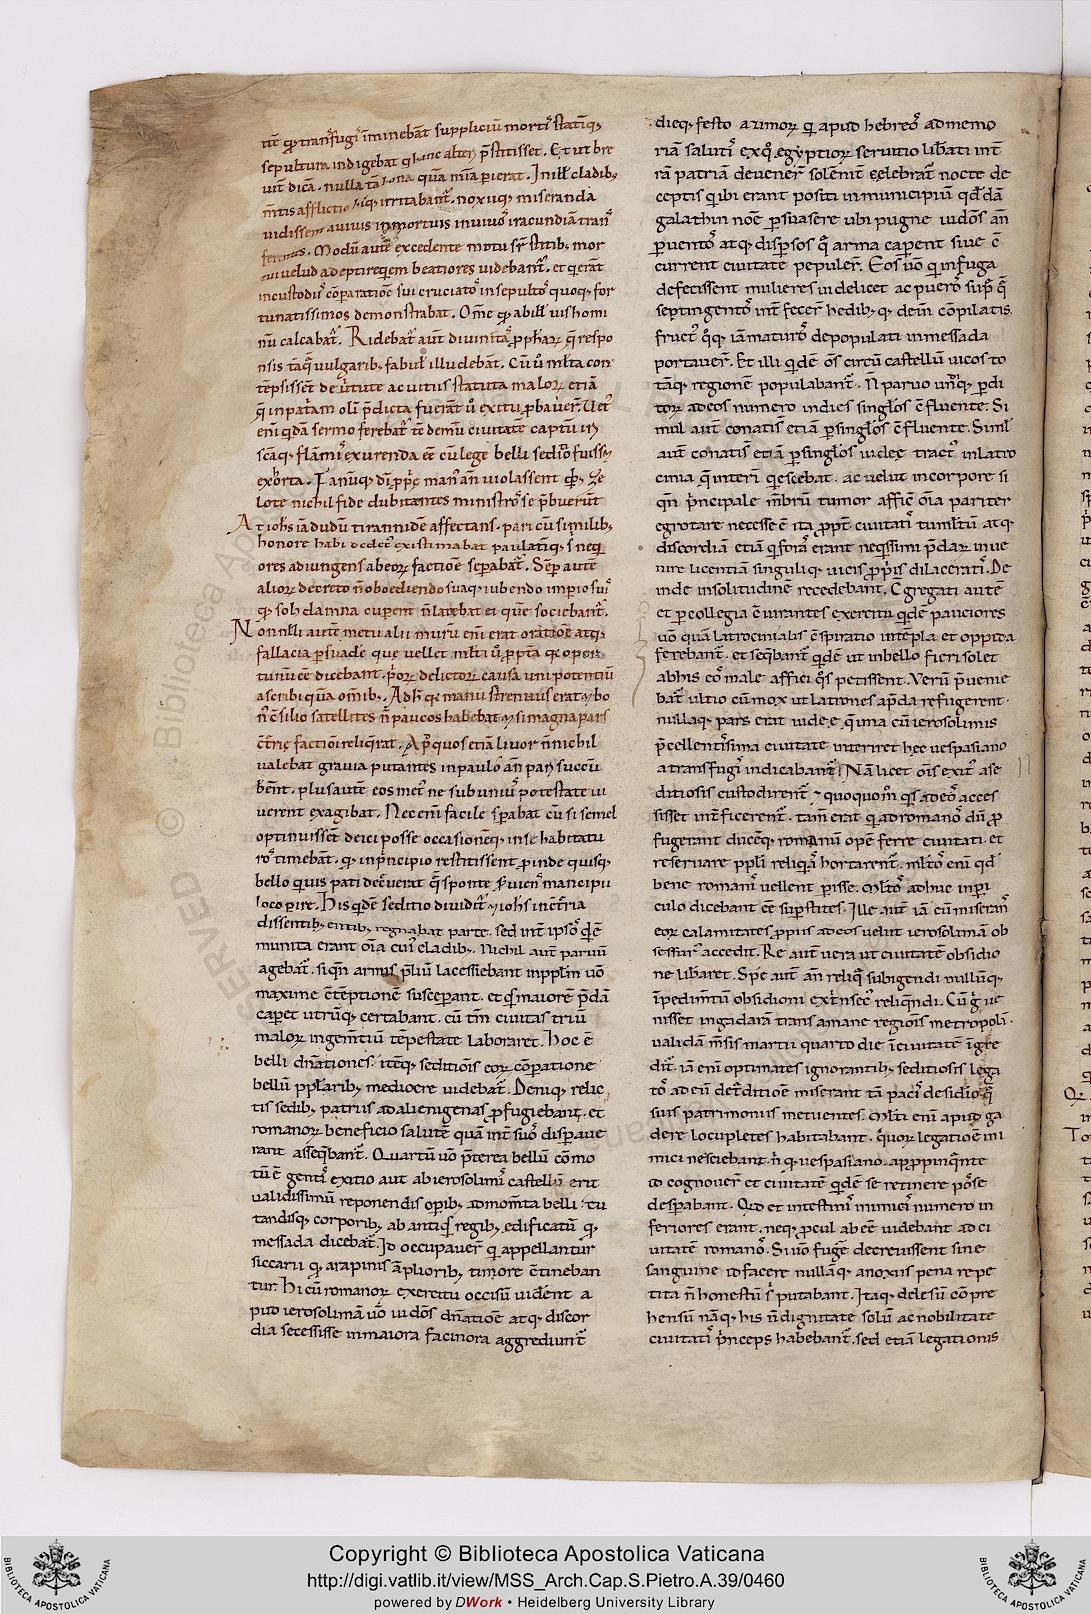 sepultura indigebat
uit dicā. nulla tā bona quā mīa perierat. In ill' cladib;
viuus in mortuis in uiuos iracundiā
Modū autē excedente motu
ui uelud adepti requiem beatiores uidebant. et q̄ erāt
in custodiis cōparatione sui cruciatos insepultos quoq; for
tunatissimos demonstrabat. Om̄e
nū calcabat. Ridebat aut diuinitas
nsis tāq̄ uulgarib; fabul' illudebat. Cū ů mlta con
tēpsissent de uirtute ac uitiis statuta maiorz etiā
q̄ in patriam olim p̄dicta fuerāt ů exitu pbauer̄. Uet
enī qdā sermo ferebat tē demū ciuitate captu iri
scāq; flāmis exurenda ēē cū lege belli seditio fuisset
exorta
lote nichil fide dubitantes ministros se p̄buerūt
At iohs iā dudū tirannide affectans. pari cū similib;
honore haberi dedecus existimabat paulatiq;
ores adiungens ab eorz factione separabat. Semp autē
aliorz decreto n̄ oboediendo suaq; iubendo imperio sui
q; soli damna cuperent n̄ latebat ei quē sociebant.
Nonnulli autē metu alii
fallacia psuadere que uellet
tunū ēē dicebant. priorz delictorz causā uni potentiū
ascribi quā omib;. Adh' manu strennuus erat & bo
n' cōsilio satellites n̄ paucos habebat & si magna pars
factionis reliquerat. Ap' quos etiā liuor n̄nichil
valebat grauia putantes in paulo an̄ pari succū
bent. plus autē eos metus ne sub unius potestate ui
uerent exagitabat. Nec enī facile sperabat cū si semel
optinuissent deici posse occasionēq; in se habitatu
ros timebāt. q; in principio restitissent proinde quisq;
bello quiuis pati decreuerat q̄ sponte seruiens mancipii
loco perire. His qdē seditio diuidit & iohs in
dissentib; entib; regnabat parte. sed int ipsos
munita erant oīa cladib;. Nichil aut paruū
agebat. siqn̄ armis pliū lacessiebant in pplm uō
maxime cōtēptionē susceperant. et qs maiorē p̄dā
caperet utrūq; certabant. cū tm̄ ciuitas triū
malorz ingentiū tēpestate laboraret. Hoc ē
belli dn̄ationes. itēq; seditionis eorz cōparatione
bellū pplarib; mediocre uidebat. Deniq; relic
tis sedib; patriis ad alienigenas profugiebant. et
romanorz beneficio salutē quā int suos dispaue
rant assequebant. Quartū uō p̄terea bellū cōmo
tū ē gentis exitio aut ab ierosolimis castellū erat
ualidissimū reponendis opib; ad momta belli
tandisq; corporib; ab antiqis regib; edificatū q;
messada dicebat. Id occupauer̄ qi appellantur
siccarii qi a rapinis āplioribus timore cōtineban
tur. Hi cū romanorz exercitu occisū uident a
pud ierosolimā uō iudeos dn̄ationē atq; discor
dia secessisse in maiora facinora aggrediunt
dieq; festo azimorz qi apud hebreos ad memo
riā salutis ex quo egyptiorz seruitio liberati int
rā patriam deuener̄ solēnit celebrat nocte de
ceptis qi ibi erant positi in municipiū qddā
galathin noē psuasere ubi pugne iudeos an̄
puentos atq; dispersos q̄ arma caperent siue cō
current ciuitate pepuler̄. Eos uō qi in fuga
defetissent mulieres uidelicet ac pueros supra
septingentos int fecer̄ hedib; q; deīn cōpilatis
fructus qoq; iā maturos depopulati in messada
portauer̄. Et illi qdē oms circū castellū uicos to
tāq; regionē populabant. N̄ paruo undiq; perdi
torz ad eos numero in dies singulos cōfluente. Si
mul aut conatis etiā p singulos cōfluente. Simul
aut conatis etiā p singulos iudee tractus in latro
cinia q̄ interim quiescebat. ac uelut in corpore si
qn̄ principale mēbrū tumor affic oīa pariter
egrotare necesse ē ita propt ciuitatis tumltū atq;
discordiā etiā qi foras erant nequissimi p̄darz inue
nire licentiā singuliq; uicis propriis dilaceratis. De
inde in solitudinē recedebant. Cōgregati autē
et p collegia cōiurantes exercitu qdē pauciores
uō quā latrociniali cōspiratio int tēpla et oppida
ferebant. et sequebant qdē ut in bello fieri solet
ab his eos male affici qos petissent. Verū p̄uenie
bat ultio cū mox ut latrones ap̄da refugerent.
nullaq; pars erat iudeę que n̄ una cū ierosolimis
p̄cellentissima ciuitate interiret hec uespasiano
a transfugis indicabant. Nā licet oms exitus a se
ditiosis custodirent & quoquo mō qi ad eos acces
sisset int̄ficerent. tam̄ erat qi ad romanos clam pro
fugerant ducēq; romanū opē ferre ciuitati. et
reseruare ppli reliqas hortarent. mltos enī qd'
bene romanis uellent perisse. Mltos adhuc in peri
culo dicebant ēē supstites. Ille aut iā cū miseratus
eorz calamitates propius ad eos uelut ierosolimā ob
sessurus accedit. Re aut uera ut ciuitatē obsidio
ne liberaret. Spe aut an̄ reliqs subigendi nullūq;
īpedimtum obsidioni extrinsecus relinquendi. Cū g° ue
nisset in gadarā trans amane regionis metropolī.
ualidā mensis martii quarto die ī ciuitatē īgre
dit. iā enī optimates ignorantib; seditiosis lega
tos ad eū de traditionē miserant tā pacis desidio q̄
suis patrimoniis metuentes. Mlti enī apud ga
dere locupletes habitabant. quorz legationē ini
mici nesciebant. n̄ q; uespasiano appropinqnte
id cognouer̄ et ciuitatē qdē se retinere posse
desperabant. Qd et intestinis inimicis numero in
feriores erant. neq; procul abēē uidebant ad ci
uitatē romanos. Si uō fuge decreuissent sine
sanguine id facere nullāq; a noxiis pena repe
tita n̄ honestū si putabant. Itaq; delesum cōpre
hensū nāq; his n̄ dignitate solū ac nobilitate
ciuitatis princeps habebant. sed etiā legationis
Copyright © Biblioteca Apostolica Vaticana
http://digi.vatlib.it/view/MSS_Arch.Cap.S.Pietro.A.39/0460
powered by DWork • Heidelberg University Library